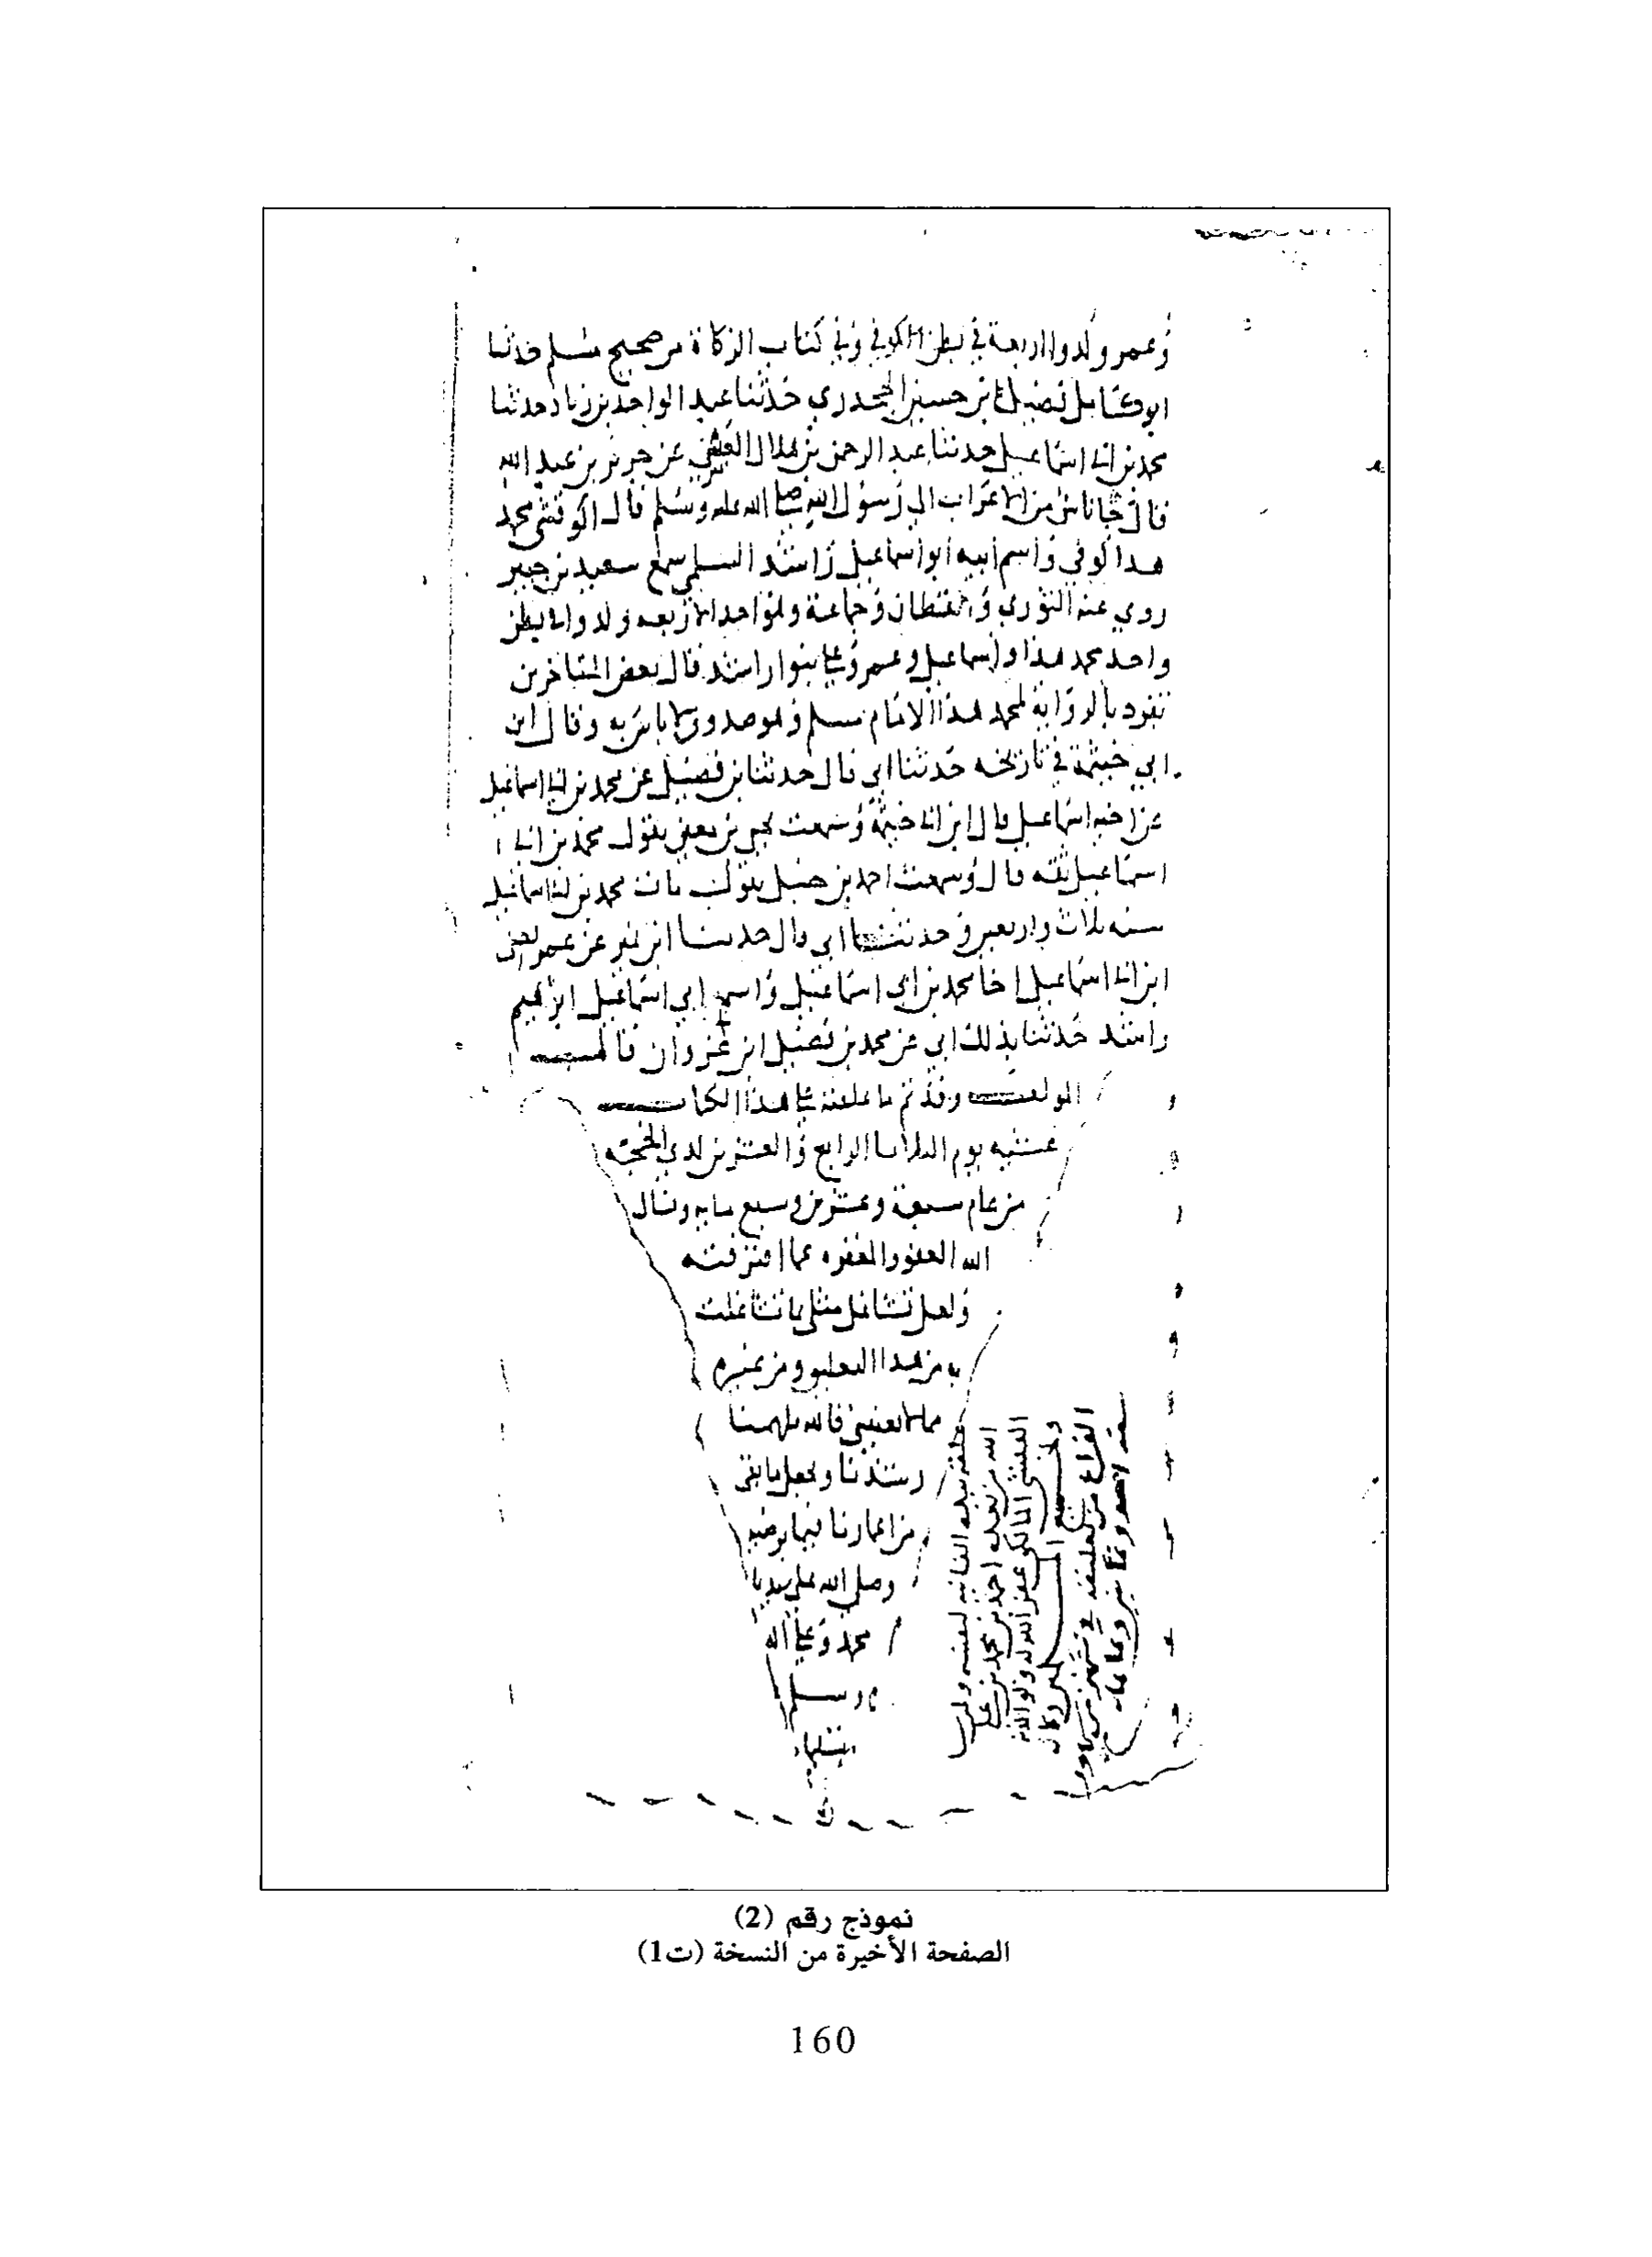 وعمر ولدوا اربعة في بطن الكوفي وفي كتاب الزكاة من صحيح مسلم حدثنا
ابو كامل فضيل بن حسين الجحدري حدثنا عبد الواحد بن زياد حدثنا
محمد بن ابي اسماعيل حدثنا عبد الرحمن بن هلال العبسي عن جرير بن عبد الله
قال جا ناس من الاعراب الى رسول الله صلى الله عليه وسلم قال محمد
هذا كوفي واسم ابيه ابو اسماعيل راشد السلمي سمع سعيد بن جبير
روي عنه الثوري والقطان وجماعة وهو احد الاربعه ولدوا في بطن
واحد محمد هذا واسماعيل وعمر وعلي بنوا راشد قال بعض المتاخرين
تفرد بالرواية لمحمد هذا الامام مسلم وهو صدوق لا باس به وقال ابن
ابي خيثمة في تاريخه حدثنا ابي قال حدثنا بن فضيل عن محمد بن ابي اسماعيل
عن اخيه اسماعيل قال ابن ابي خيثمة وسمعت يحيى بن معين يقول محمد بن ابي
اسماعيل ثقه قال وسمعت احمد بن حنبل يقول مات محمد بن ابي اسماعيل
سنه ثلاث واربعين وحدثنا ابي قال حدثنا ابن نمير عن عمر
ابن ابي اسماعيل اخا محمد بن ابي اسماعيل واسم ابي اسماعيل ابرهيم
راشد حدثنا بذلك ابي عن محمد بن فضيل ابن غزوان قال
المولف وقد تم ما علقته على هذا الكتاب
عشيه يوم الثلاثا الرابع والعشرين لذي الحجه
من عام سبعة وعشرين وسبع مايه ونسال
الله العفو والغفره عما اقترفته
ولعل تشاغل مثلي بما تشاغلت
به من هذا التعليق ومن غيره
مما لا يعنيني فالله يلهمنا
رشدنا ويجعل ما بقي
من اعمارنا فيما يرضيه
وصلى الله على سيدنا
محمد وعلى اله
وسلم
تسليما
علقه بيده الفانيه لنفسه ولمن
الله من بعده احمد بن محمد بن علي
المالكي غفر الله له ولوالديه
ولجميع المسلمين وكان
الفراغ من تعليقه في شهر
سنه احد وثمانين وثمان مايه
نموذج رقم (2)
الصفحة الأخيرة من النسخة (ت1)
160